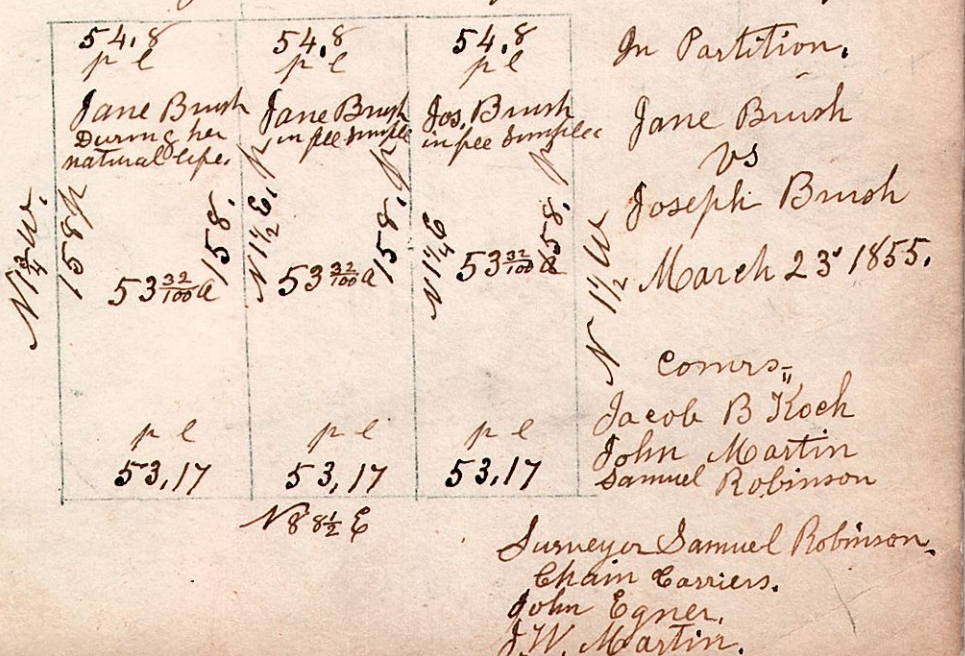 54,8
p l
Jane Brush
During her
natural life.
N 1¾ W.
158 p
53 32/100 a
158. p
p l
53,17
54,8
p l
Jane Brush
in fee simple
N 1½ E.
53 32/100 a
158. p
p l
53,17
54,8
p l
Jos. Brush
in fee simple
N 1¼ E
53 32/100 a
158. p
p l
53,17
N 1½ W
N 88½ E
In Partition.
Jane Brush
vs
Joseph Brush
March 23d 1855.
Comrs.
Jacob B Koch
John Martin
Samuel Robinson
Surveyor Samuel Robinson.
Chain Carriers.
John Egner.
J.W. Martin.